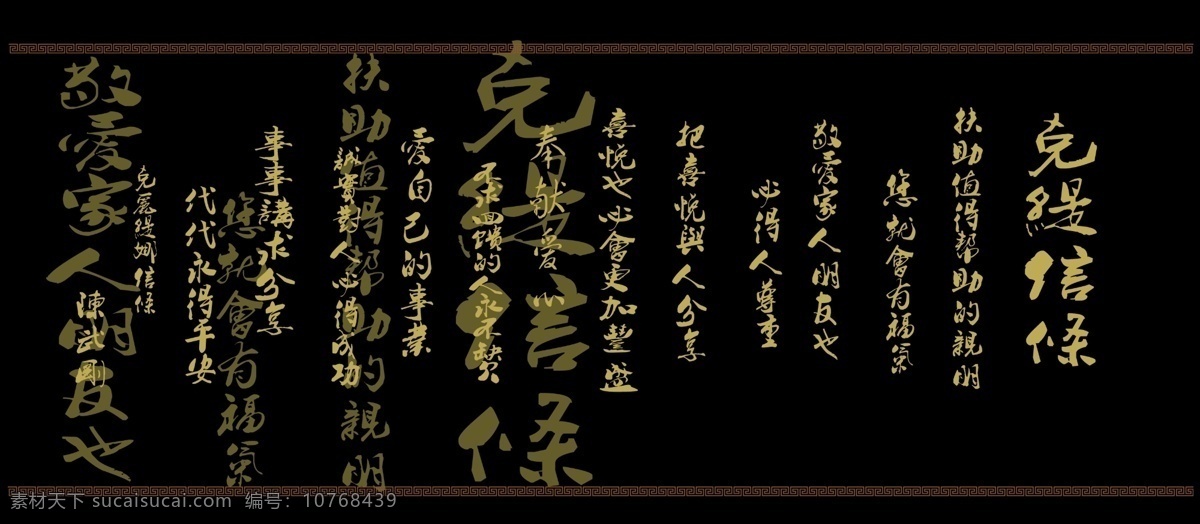 克緹信條
扶助值得幫助的親朋
您就會有福氣
敬愛家人朋友也
必得人尊重
把喜悅與人分享
喜悅也必會更加豐盛
奉献愛心
不求回饋的人永不缺
愛自己的事業
誠實對人必得成功
事事講求分享
代代永得平安
克麗緹娜信條
陳武剛
克緹信條
扶助值得幫助的親朋
您就會有福氣
敬愛家人朋友也
素材天下 sucaisucai.com 编号：10768439